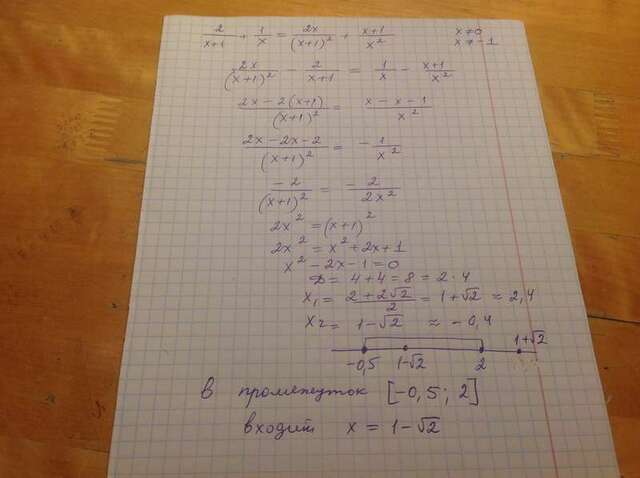 2/(x+1) + 1/x = 2x/(x+1)² + (x+1)/x² x≠0
x≠-1
2x/(x+1)² - 2/(x+1) = 1/x - (x+1)/x²
(2x-2(x+1))/(x+1)² = (x-x-1)/x²
(2x-2x-2)/(x+1)² = -1/x²
-2/(x+1)² = -2/(2x²)
2x² = (x+1)²
2x² = x²+2x+1
x²-2x-1=0
D= 4+4=8=2·4
x₁= (2+2√2)/2 = 1+√2 ≈ 2,4
x₂= 1-√2 ≈ -0,4
-0,5 1-√2 2 1+√2
в промежуток [-0,5; 2]
входит x = 1-√2